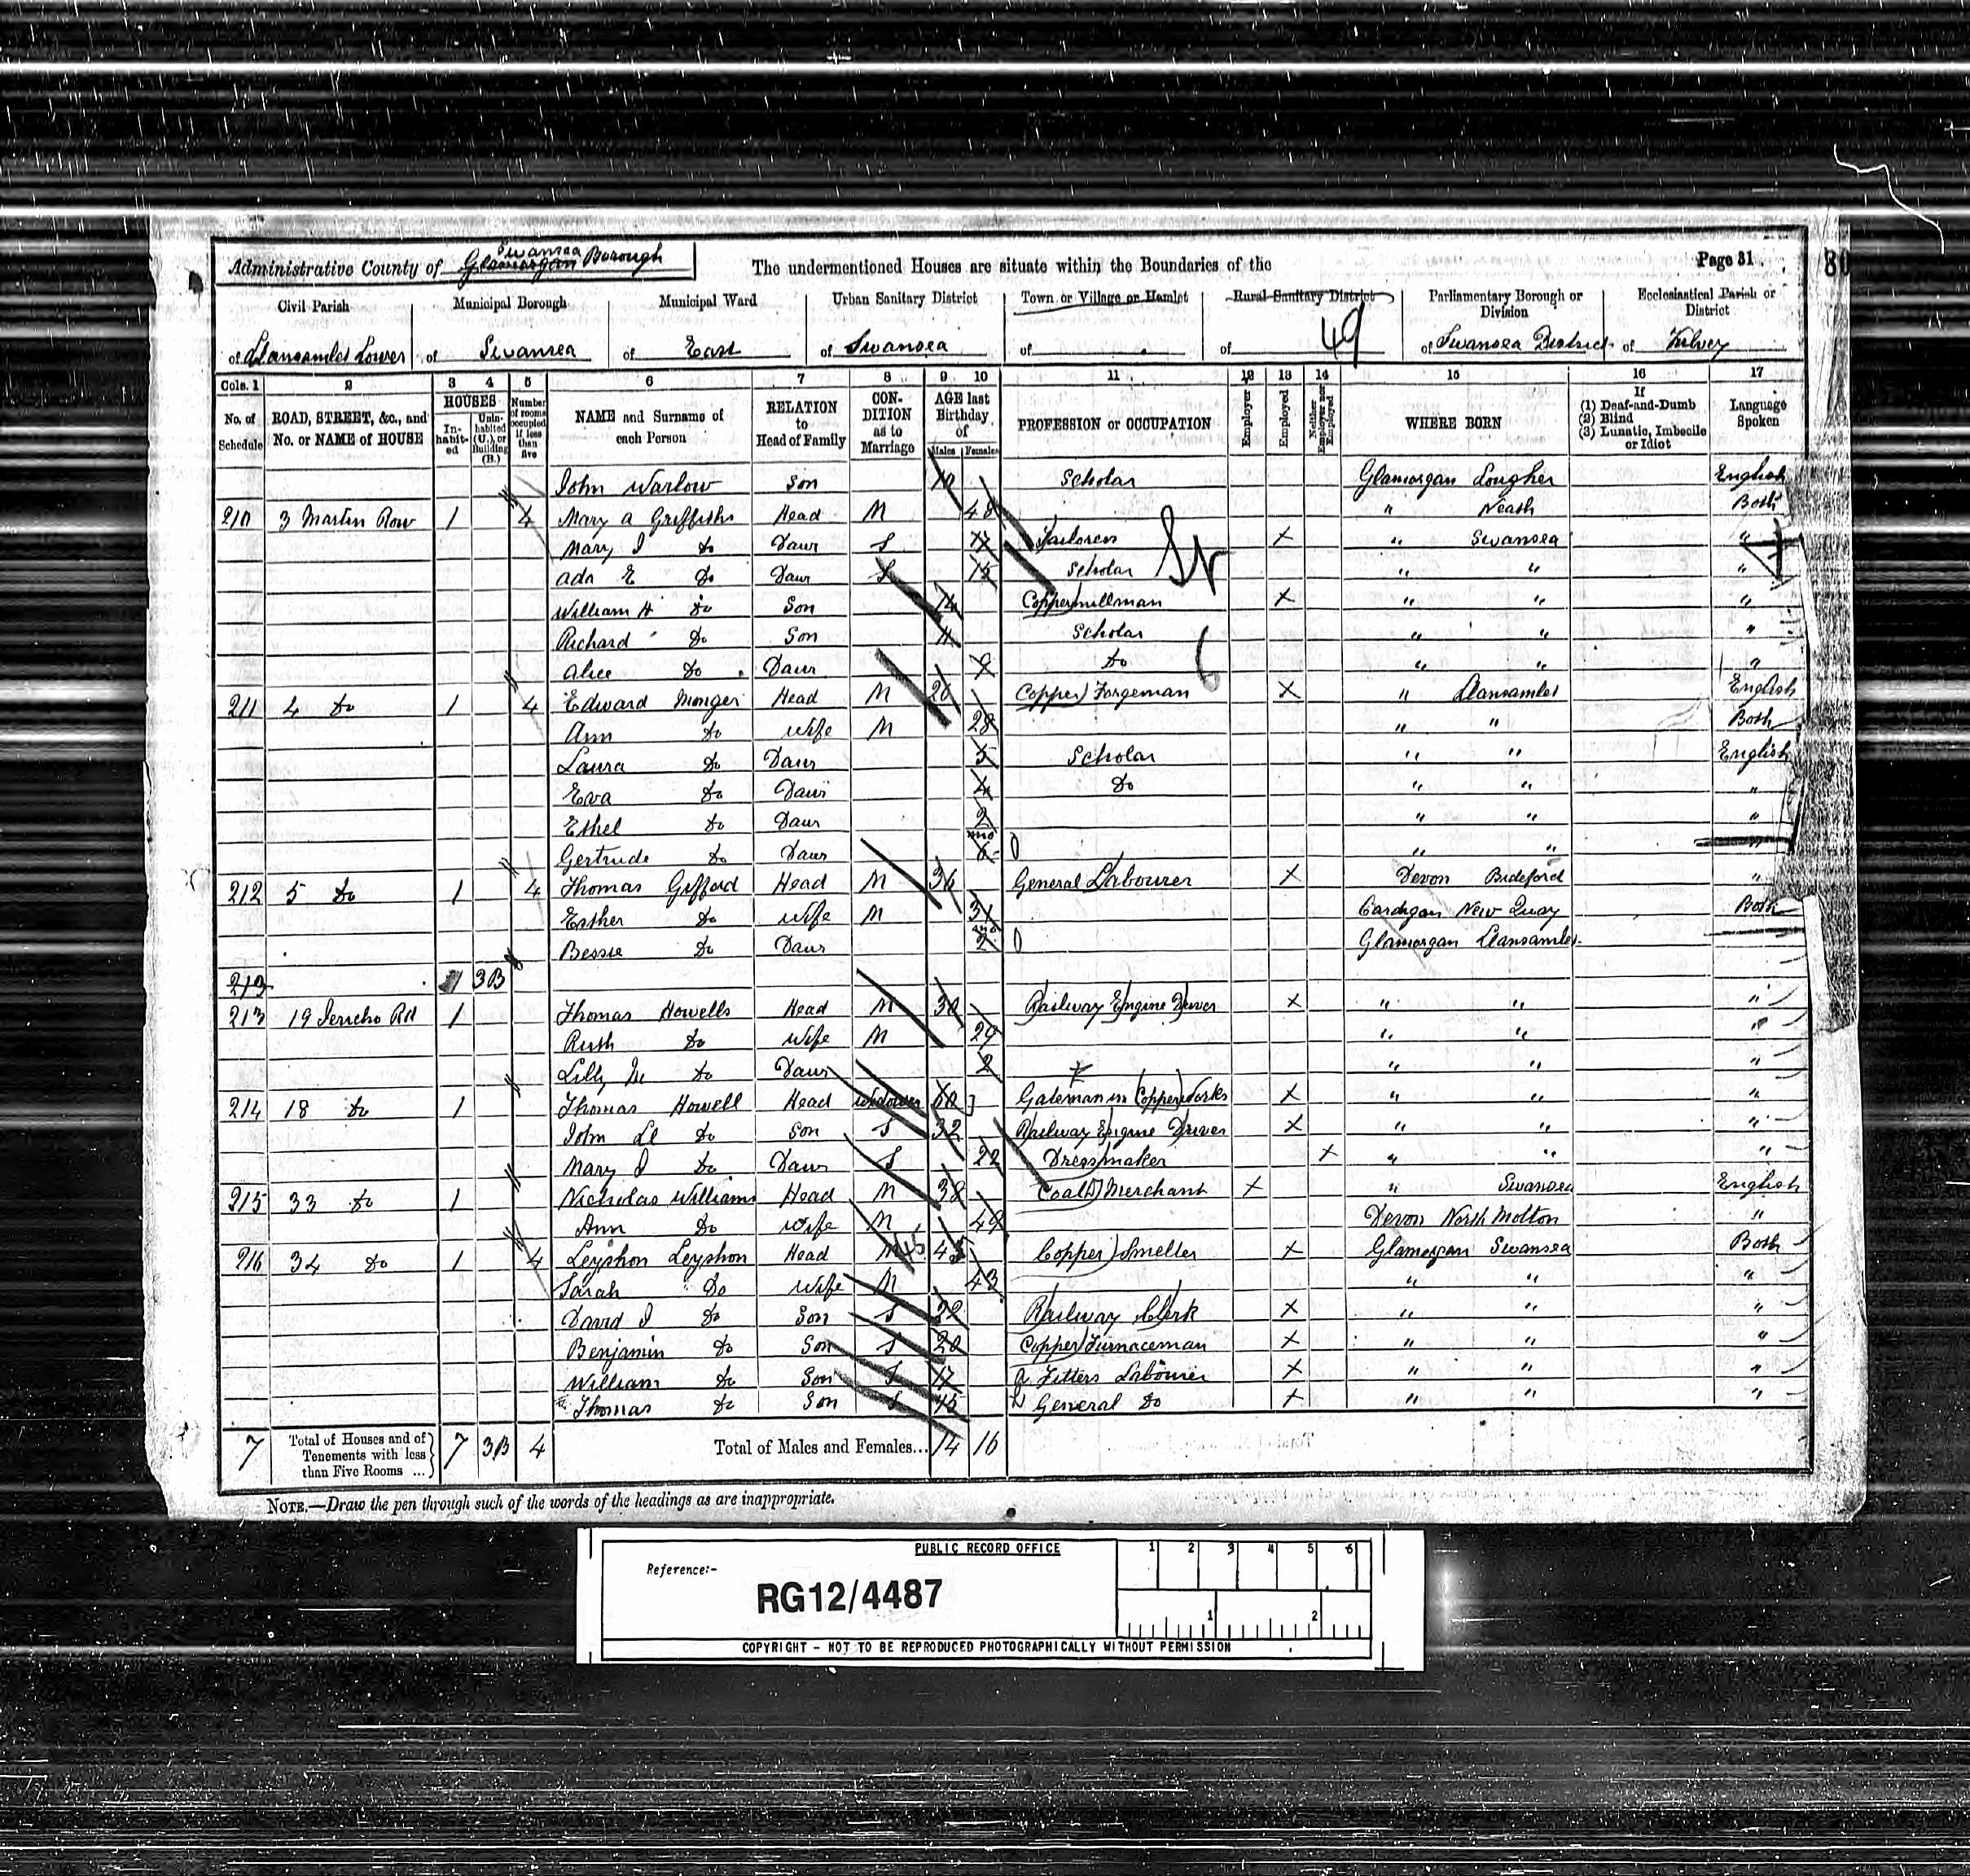 Administrative County of Glamorgan Swansea Borough
The undermentioned Houses are situate within the Boundaries of the
Page 31
80
Civil Parish
Municipal Borough
Municipal Ward
Urban Sanitary District
Town or Village or Hamlet
Rural Sanitary District
Parliamentary Borough or Division
Ecclesiastical Parish or District
of Llansamlet Lower
of Swansea
of East
of Swansea
of
of 49
of Swansea District
of Kilvey
Cols. 1 2 3 4 5 6 7 8 9 10 11 12 13 14 15 16 17
No. of Schedule
ROAD, STREET, &c., and No. or NAME of HOUSE
HOUSES
In-habit-ed
Unin-habited (U.), or Building (B.)
Number of rooms occupied if less than five
NAME and Surname of each Person
RELATION to Head of Family
CON-DITION as to Marriage
AGE last Birthday of
Males Females
PROFESSION or OCCUPATION
Employer
Employed
Neither Employer nor Employed
WHERE BORN
If
(1) Deaf-and-Dumb
(2) Blind
(3) Lunatic, Imbecile or Idiot
Language Spoken
John Warlow Son 10 Scholar Glamorgan Lougher English
210 3 Martin Row 1 4 Mary A Griffiths Head M 48 " Neath Both
Mary J Do Daur S Tailoress X " Swansea "
Ada E Do Daur S 15 Scholar " " "
William H Do Son 14 Copper millman X " " "
Richard Do Son 11 Scholar " " "
Alice Do Daur 9 Do " " "
211 4 Do 1 4 Edward Monger Head M Copper Forgeman X " Llansamlet English
Ann Do Wife M 28 " " Both
Laura Do Daur 5 Scholar " " English
Eva Do Daur 4 Do " " "
Ethel Do Daur 2 " " "
Gertrude Do Daur 6 mo " " "
212 5 Do 1 4 Thomas Gifford Head M 36 General Labourer X Devon Bideford "
Esther Do Wife M 31 Cardigan New Quay Both
Bessie Do Daur 2 mo Glamorgan Llansamlet
213 1 3B
213 19 Jericho Rd 1 Thomas Howells Head M 30 Railway Engine Driver X " " "
Ruth Do Wife M 29 " " "
Lilly M Do Daur 2 " " "
214 18 Do 1 Thomas Howell Head Widower 60 Gateman in Copper Works X " " "
John Ll Do Son S 32 Railway Engine Driver X " " "
Mary J Do Daur S 22 Dressmaker X " " "
215 33 Do 1 Nicholas Williams Head M 38 Coal Merchant X " Swansea English
Ann Do Wife M 49 Devon North Molton "
216 34 Do 1 4 Leyshon Leyshon Head M 45 45 Copper Smelter X Glamorgan Swansea Both
Sarah Do Wife M 43 " " "
David J Do Son S 22 Railway Clerk X " " "
Benjamin Do Son S 20 Copper Furnaceman X " " "
William Do Son S 17 a Fitters Labourer X " " "
Thomas Do Son S 15 General Do X " " "
7 Total of Houses and of Tenements with less than Five Rooms ... 7 3B 4 Total of Males and Females... 14 16
NOTE.—Draw the pen through such of the words of the headings as are inappropriate.
PUBLIC RECORD OFFICE
Reference:-
RG12/4487
1 2 3 4 5 6
1 2
COPYRIGHT - NOT TO BE REPRODUCED PHOTOGRAPHICALLY WITHOUT PERMISSION